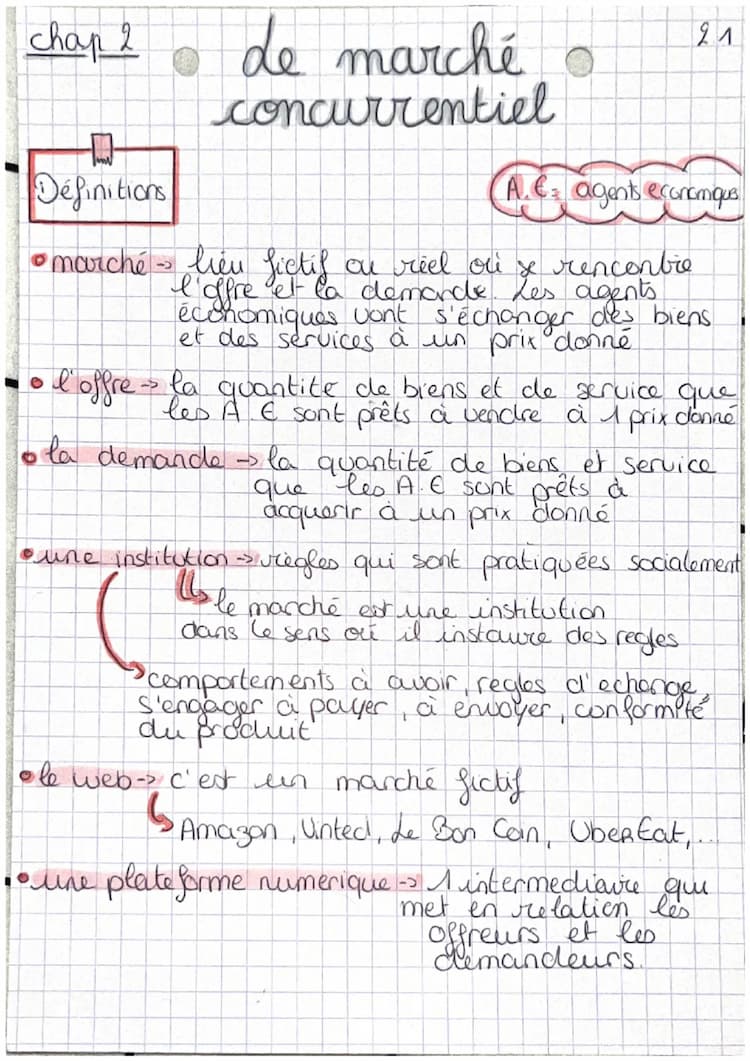 chap 2
21
de marché
concurrentiel
Définitions
A.E= agents economiques
marché -> lieu fictif ou réel où se rencontre
l'offre et la demande. Les agents
économiques vont s'échanger des biens
et des services à un prix donné
l'offre -> la quantite de biens et de service que
les A.E sont prêts à vendre à 1 prix donné
la demande -> la quantité de biens et service
que les A.E sont prêts à
acquerir à un prix donné
une institution -> règles qui sont pratiquées socialement
le marché est une institution
dans le sens où il instaure des regles
comportements à avoir, regles d'echange,
s'engager à payer, à envoyer, conformité
du produit
le web -> c'est un marché fictif
Amazon, Vinted, Le Bon Coin, UberEat,...
une plateforme numerique -> 1 intermediaire qui
met en relation les
offreurs et les
demandeurs.